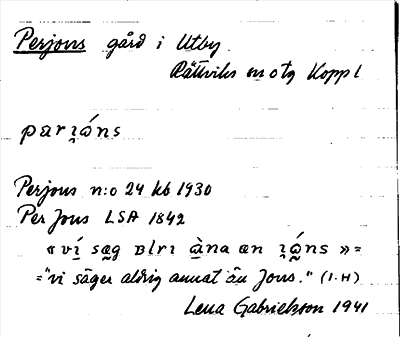 Perjons gård i Utby
Rättviks sn o tg Koppl
parı̯ɷ́ns
Perjons n:o 24 kb 1930
Per Jons LSA 1842
« ví sæg ɒlrı àna æn ı̯ɷ́ns » =
= "vi säger aldrig annat än Jons." (I.H)
Lena Gabrielsson 1941